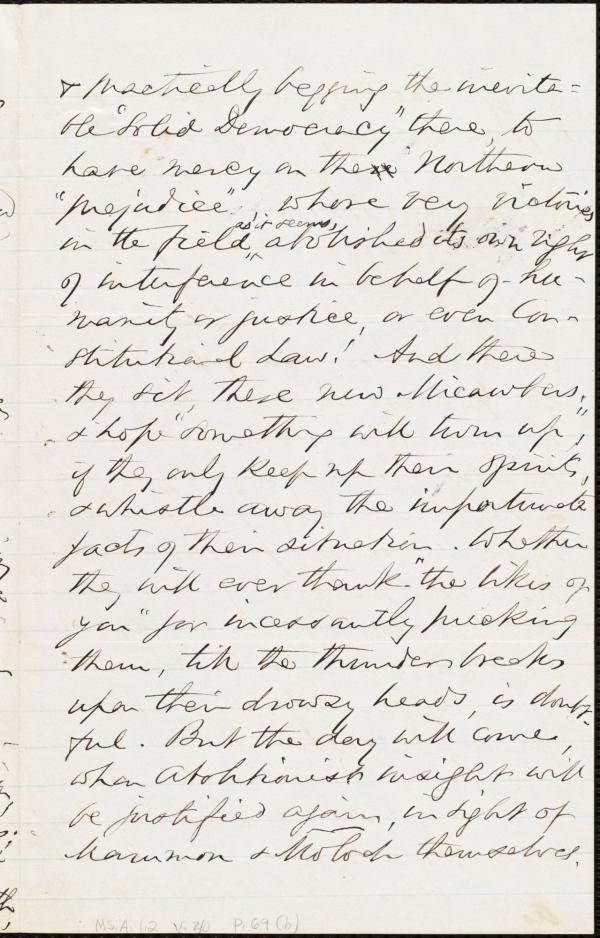 & practically begging the inevita=
ble "Solid Democracy" there, to
have mercy on these Northern
"prejudice" whose very victories
as it seems,
in the field, abolished its own right
of interference in behalf of hu-
manity or justice, or even Con-
stitutional Law! And there
they sit, these new Micawbers,
& hope "something will turn up",
if they only keep up their spirits,
& whistle away the importunate
facts of their situation. Whether
they will ever thank "the likes of
you" for incessantly pricking
them, till the thunder breaks
upon their drowsy heads, is doubt-
ful. But the day will come,
when Abolitionist insight will
be justified again, in sight of
Mammon & Moloch themselves.
Ms.A.1.2 v.40 p.69(b)